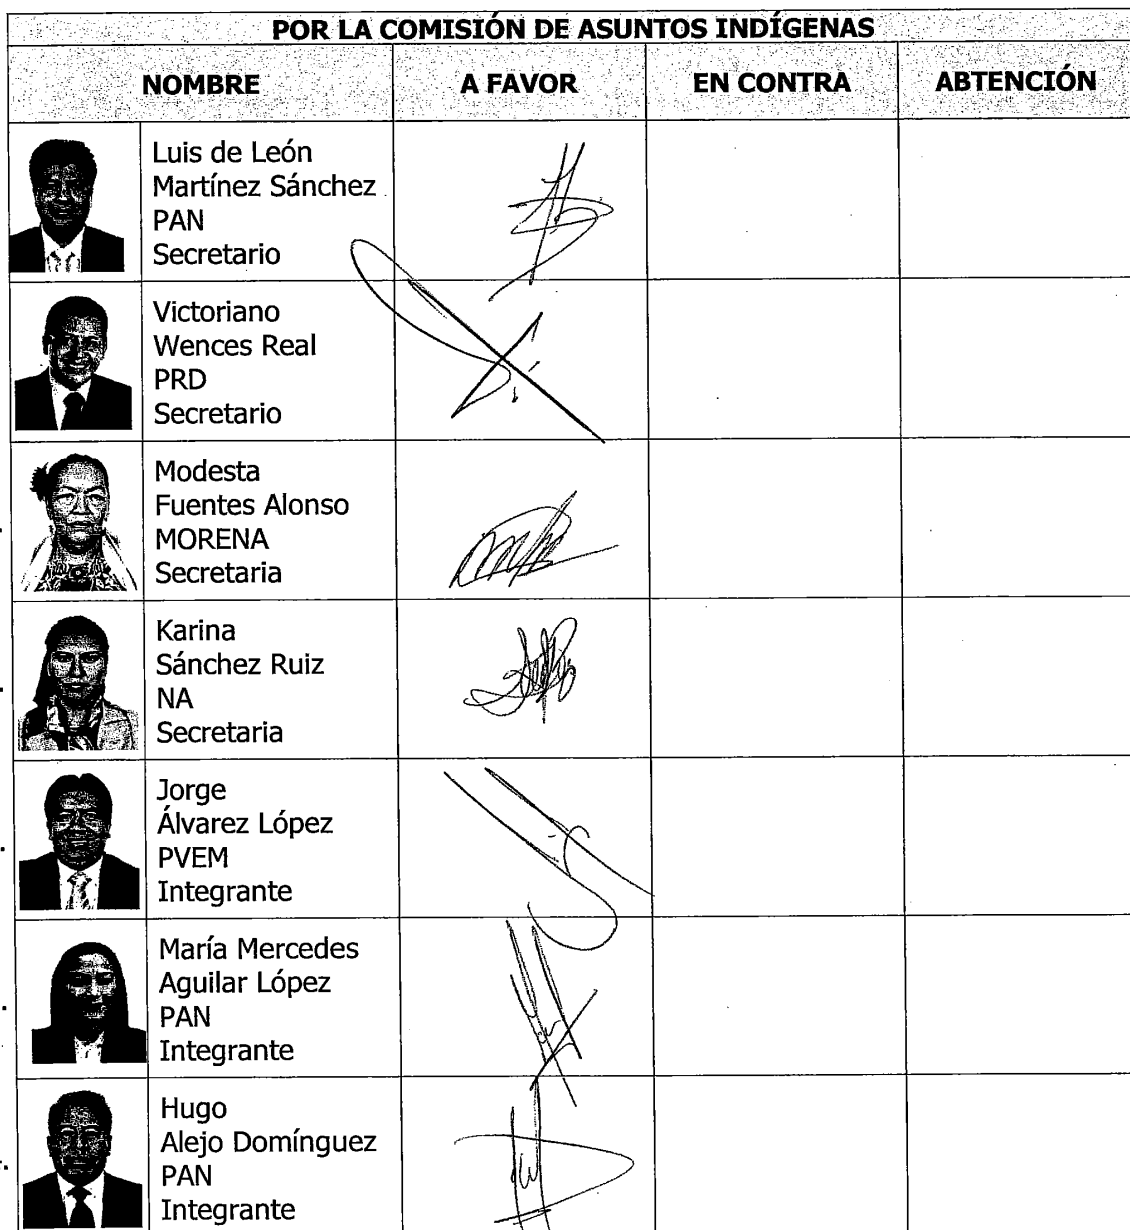 POR LA COMISIÓN DE ASUNTOS INDÍGENAS
NOMBRE A FAVOR EN CONTRA ABTENCIÓN
Luis de León
Martínez Sánchez
PAN
Secretario
Victoriano
Wences Real
PRD
Secretario
Modesta
Fuentes Alonso
MORENA
Secretaria
Karina
Sánchez Ruiz
NA
Secretaria
Jorge
Álvarez López
PVEM
Integrante
María Mercedes
Aguilar López
PAN
Integrante
Hugo
Alejo Domínguez
PAN
Integrante